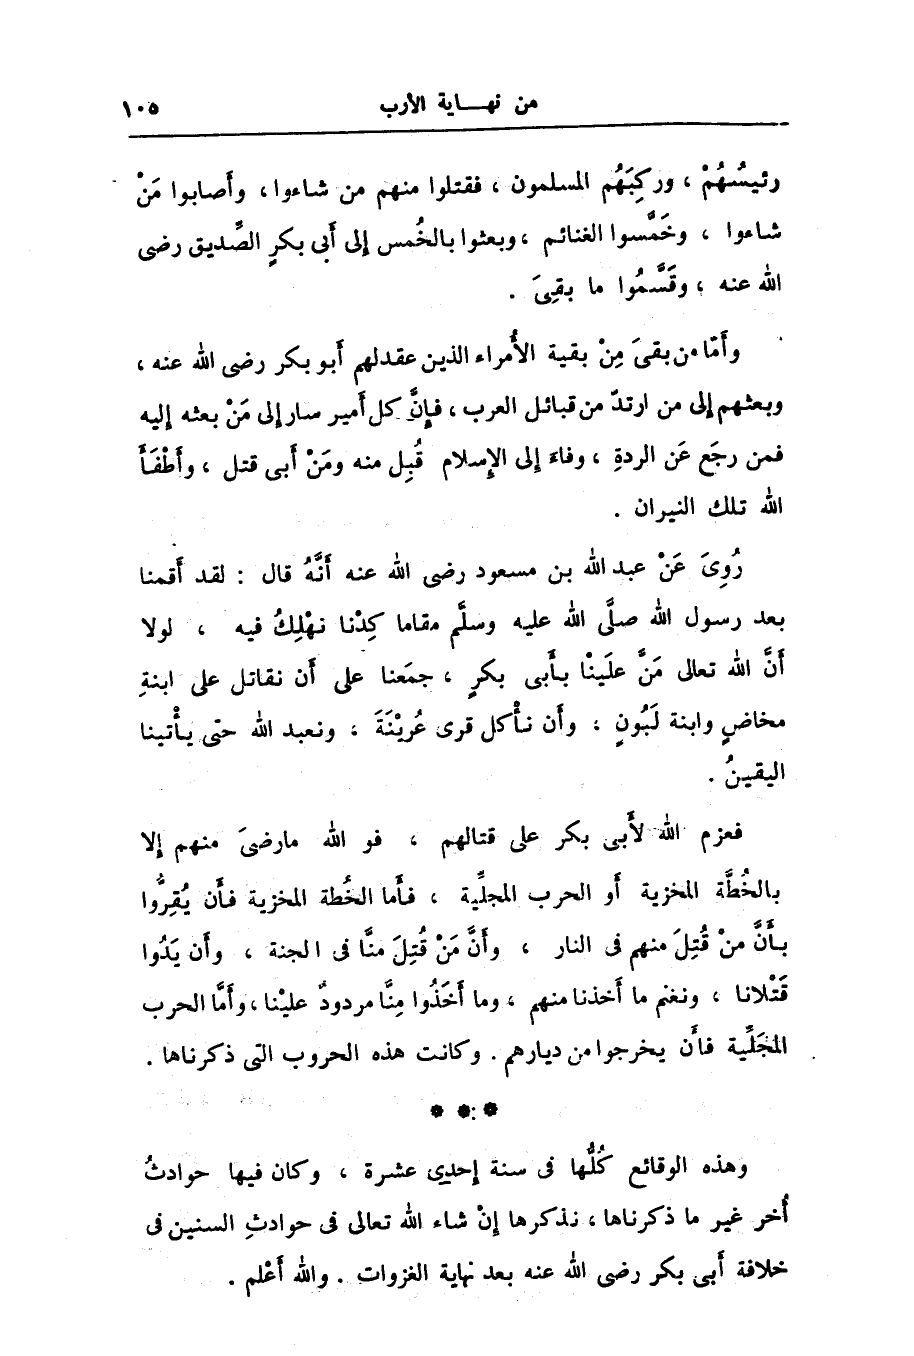 من نهـــاية الأرب ١٠٥
رئيسُهُمْ ، وركِبَهُم المسلمون ، فقتلوا منهم من شاءوا ، وأَصابوا مَنْ
شاءوا ، وخَمَّسوا الغنائم ، وبعثوا بالخُمس إلى أَبى بكرٍ الصِّديق رضى
الله عنه ، وقَسَّمُوا ما بقِىَ .
وأَمّا من بقىَ مِنْ بقية الأُمراء الذين عقد لهم أَبو بكر رضى الله عنه ،
وبعثهم إلى من ارتدّ من قبائل العرب ، فإنَّ كل أَمير سار إلى مَنْ بعثه إليه
فمن رجَع عَن الردةِ ، وفاءَ إلى الإِسلام قُبِل منه ومَنْ أَبى قتل ، وأَطْفَأَ
الله تلك النيران .
رُوِىَ عَنْ عبد الله بن مسعود رضى الله عنه أَنَّهُ قال : لقد أَقمنا
بعد رسول الله صلَّى الله عليه وسلَّم مقاما كِدْنا نهْلِكُ فيه ، لولا
أَنَّ الله تعالى مَنَّ علَينْا بأَبى بكرٍ ، جمَعنا على أَن نقاتل على ابنةِ
مخاضٍ وابنة لَبُونٍ ، وأَن نأْكل قرى عُرَيْنَةَ ، ونعبد الله حتّى يأْتينا
اليقينُ .
فعزم الله لأَبى بكر على قتالهم ، فو الله مارضىَ منهم إلا
بالخُطَّة المخزية أَو الحرب المجلِّية ، فأَما الخُطة المخزية فأَن يُقِرُّوا
بأَنَّ منْ قُتِلَ منهم فى النار ، وأَنَّ مَنْ قُتِلَ منَّا فى الجنة ، وأَن يَدُوا
قَتْلانا ، ونغنم ما أَخذنا منهم ، وما أَخَذُوا مِنَّا مردودٌ عليْنا ، وأَمَّا الحرب
المجَلِّية فأَن يخرجوا من ديارهم . وكانت هذه الحروب التى ذكرناها .
* * *
وهذه الوقائع كُلُّها فى سنة إحدى عشرة ، وكان فيها حوادثُ
أُخر غير ما ذكرناها ، نذكرها إنْ شاء الله تعالى فى حوادثِ السنين فى
خلافة أَبى بكر رضى الله عنه بعد نهاية الغزوات . والله أَعْلم .